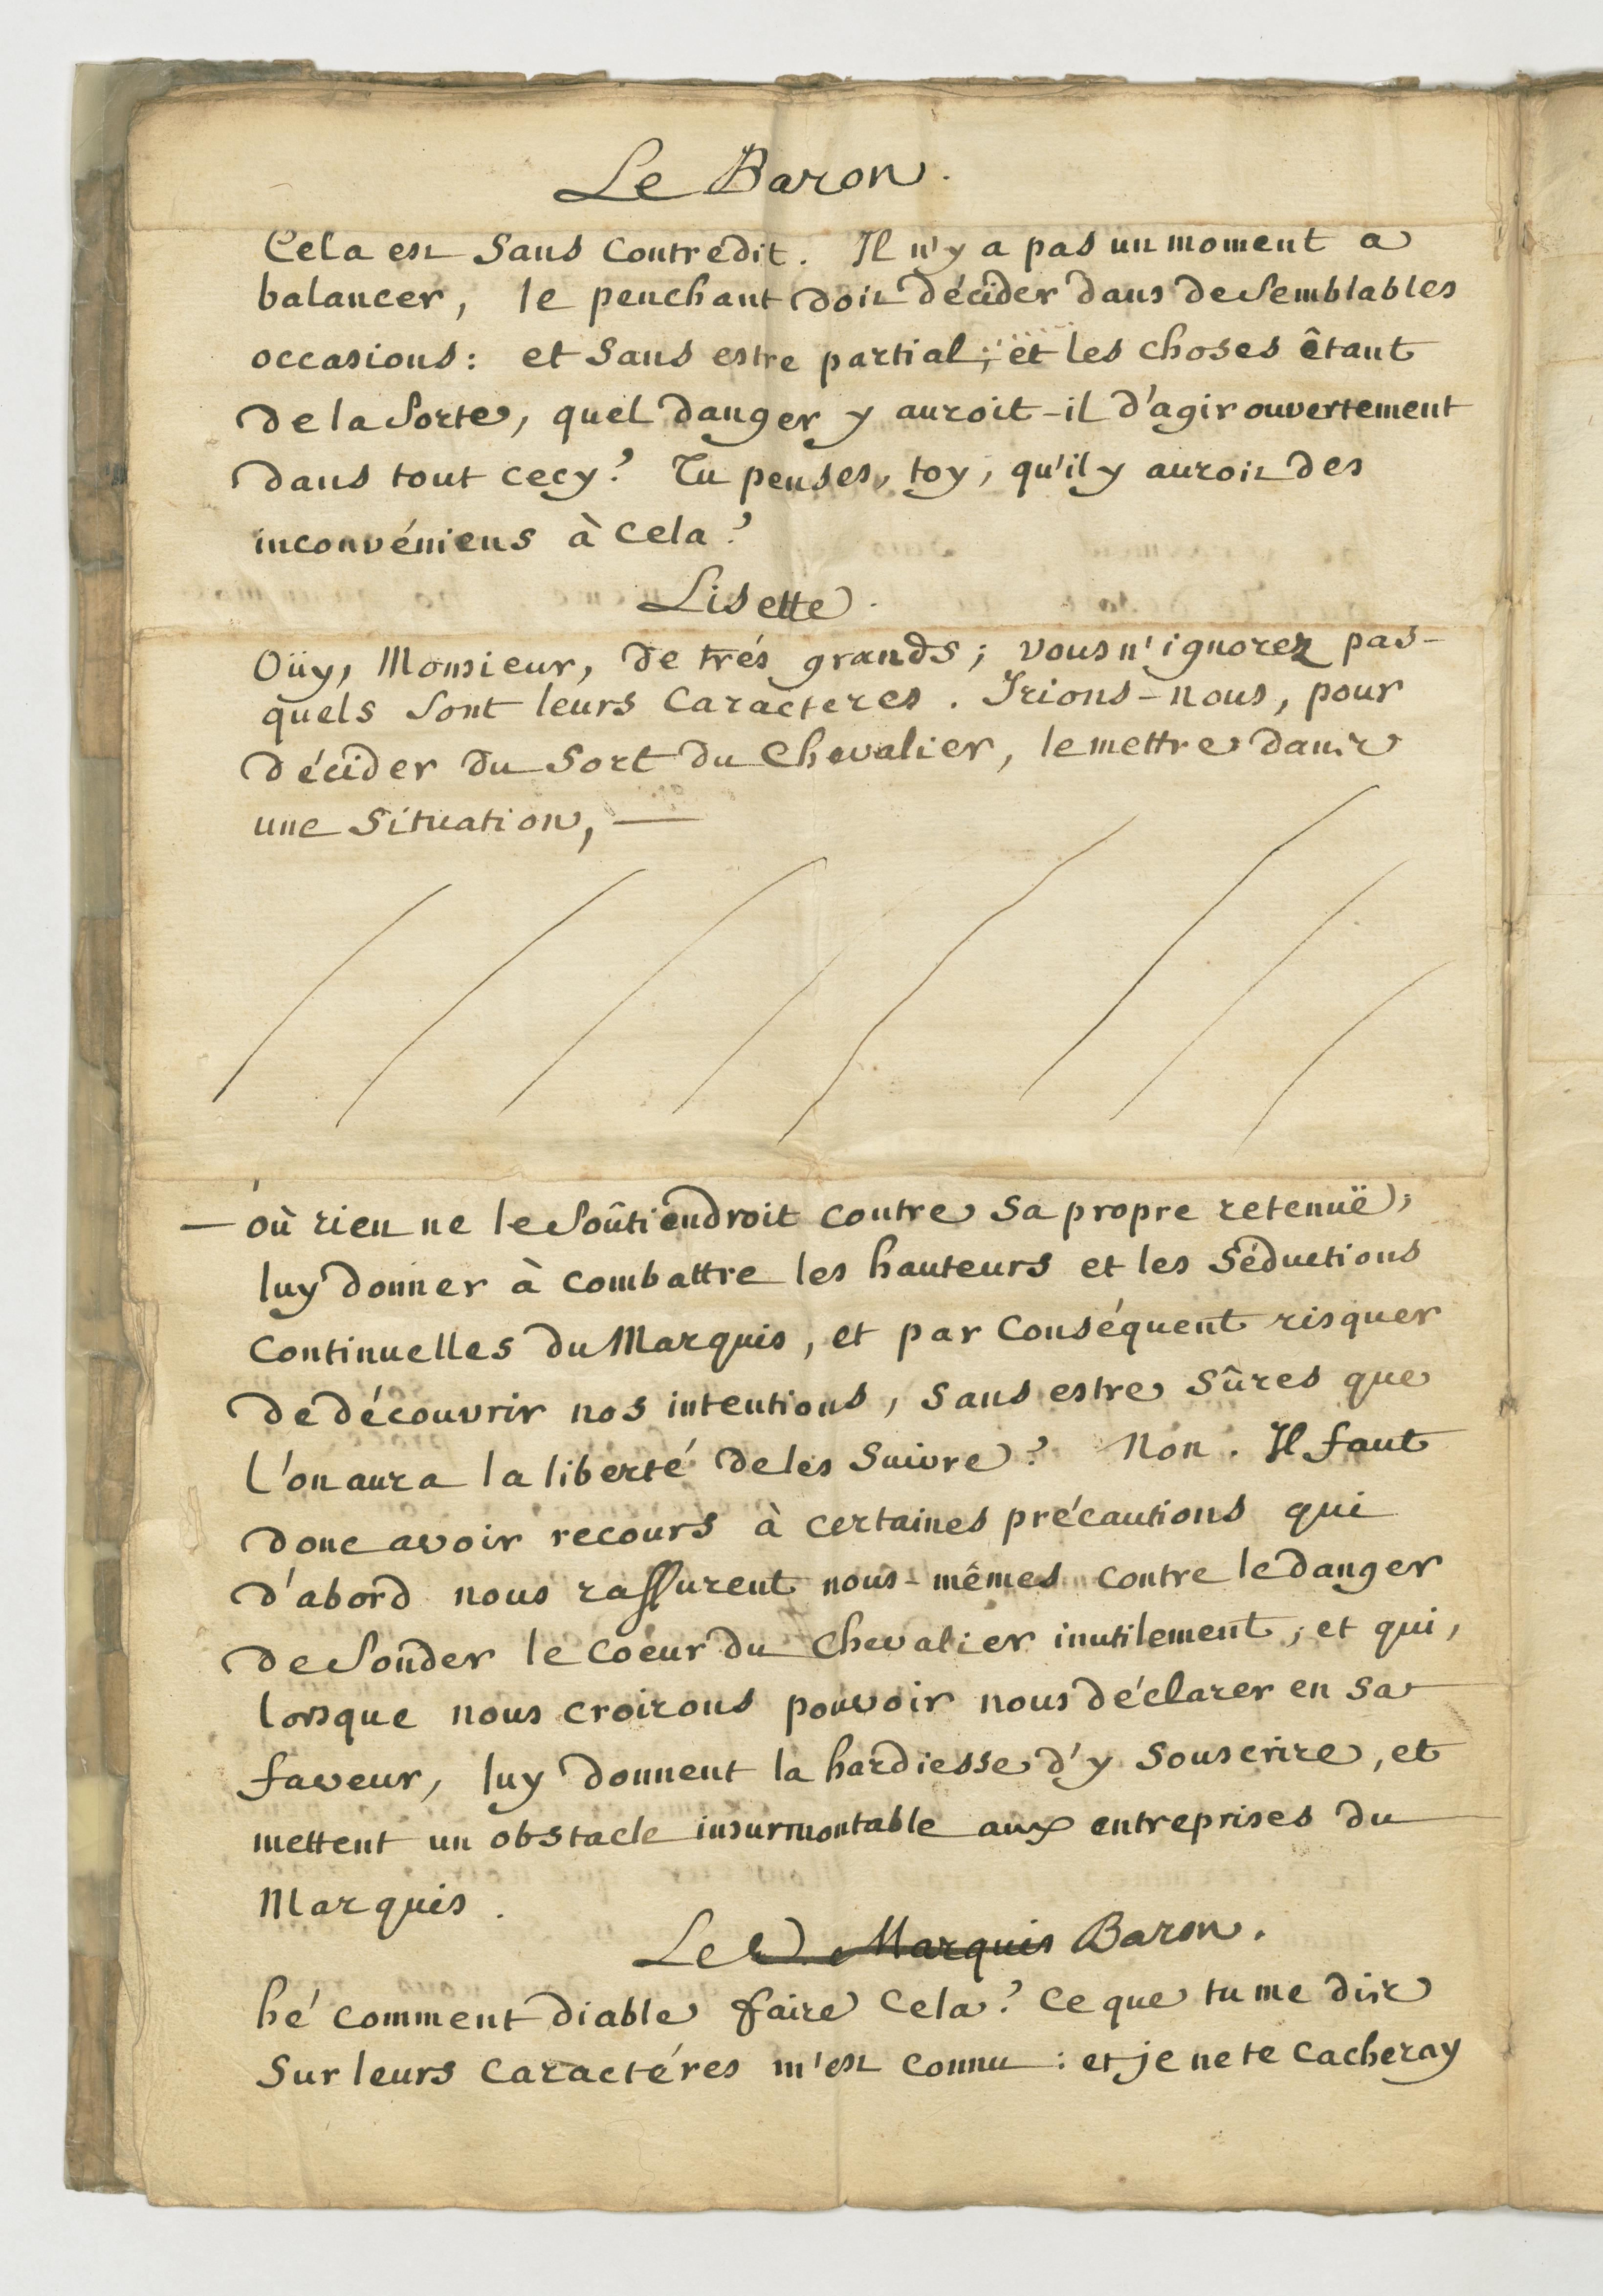 Le Baron.
Cela est Sans Contredit. Il n'y a pas un moment a
balancer, le penchant doit décider dans de Semblables
occasions: et Sans estre partial; et les choses êtant
de la Sorte, quel danger y auroit-il d'agir ouvertement
dans tout cecy? Tu penses, toy, qu'il y auroit des
inconvéniens à Cela?
Lisette.
Oüy, Monsieur, de trés grands; vous n'ignorez pas-
quels Sont leurs Caracteres. Irions-nous, pour
décider du Sort du Chevalier, le mettre dans
une Situation, —
— où rien ne le Soûtiendroit contre Sa propre retenuë;
luy donner à combattre les hauteurs et les Séductions
Continuelles du Marquis, et par Conséquent risquer
de découvrir nos intentions, Sans estre Sûres que
l'on aura la liberté de les Suivre? Non. Il faut
donc avoir recours à certaines précautions qui
d'abord nous rassurent nous-mêmes contre le danger
de Sonder le Coeur du Chevalier inutilement, et qui,
lorsque nous croirons pouvoir nous déclarer en Sa
faveur, luy donnent la hardiesse d'y Souscrire, et
mettent un obstacle insurmontable aux entreprises du
Marquis.
Le Marquis Baron.
hé comment diable faire Cela? Ce que tu me dis
Sur leurs Caractéres m'est connu: et je ne te Cacheray